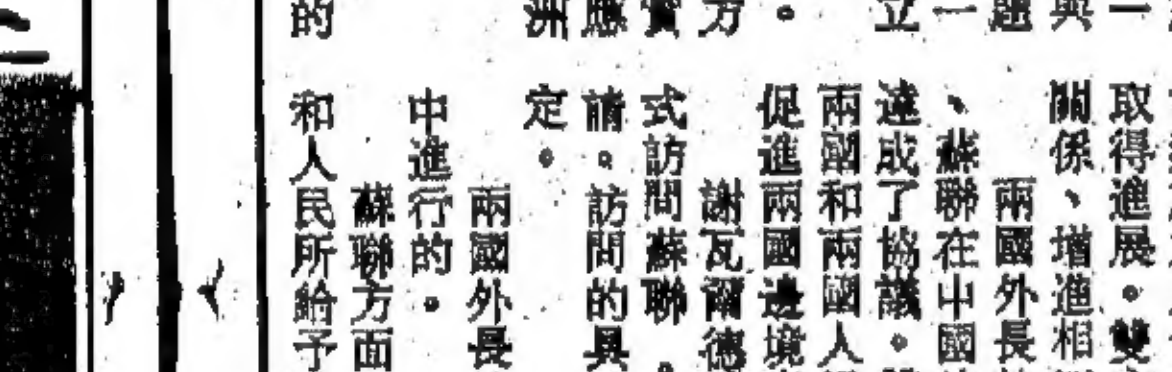 一
與
題
一
立
。
方
實
應
洲
的
取得進展。雙
關係、增進相
兩國外長
、蘇聯在中國
達成了協議。
兩國和兩國人
促進兩國邊境
謝瓦爾德
式訪問蘇聯。
請。訪問的具
定。
兩國外長
中進行的。
蘇聯方面
和人民所給予